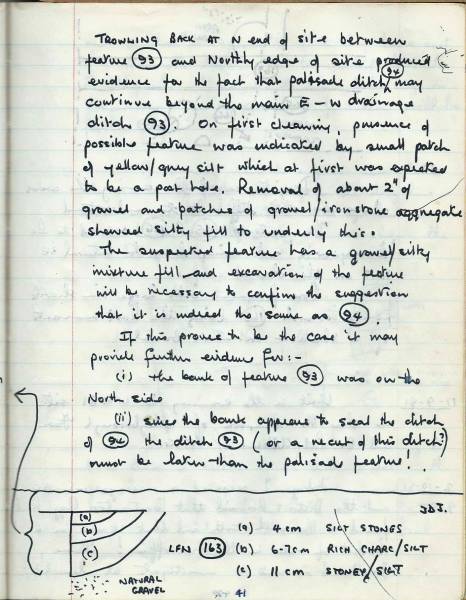 TROWLING BACK AT N end of site between
feature 93 and Northly edge of site produced
evidence for the fact that palisade ditch 94 may
continue beyond the main E-W drainage
ditch 93. On first cleaning, presence of
possible feature was indicated by small patch
of yellow/grey silt which at first was expected
to be a post hole. Removal of about 2" of
gravel and patches of gravel/ironstone aggregate
showed silty fill to underly this.
The suspected feature has a gravel/silty
mixture fill and excavation of the feature
will be necessary to confirm the suggestion
that it is indeed the same as 94.
If this proves to be the case it may
provide further evidence for:-
(i) the bank of feature 93 was on the
North side
(ii) since the bank appears to seal the ditch
of 94 the ditch 93 (or a recut of this ditch?)
must be later than the palisade feature!
J.D.J.
(a)
(b)
(c)
NATURAL
GRAVEL
LFN 163
(a) 4cm SILT STONES
(b) 6-7cm RICH CHARC/SILT
(c) 11cm STONEY/SILT
41